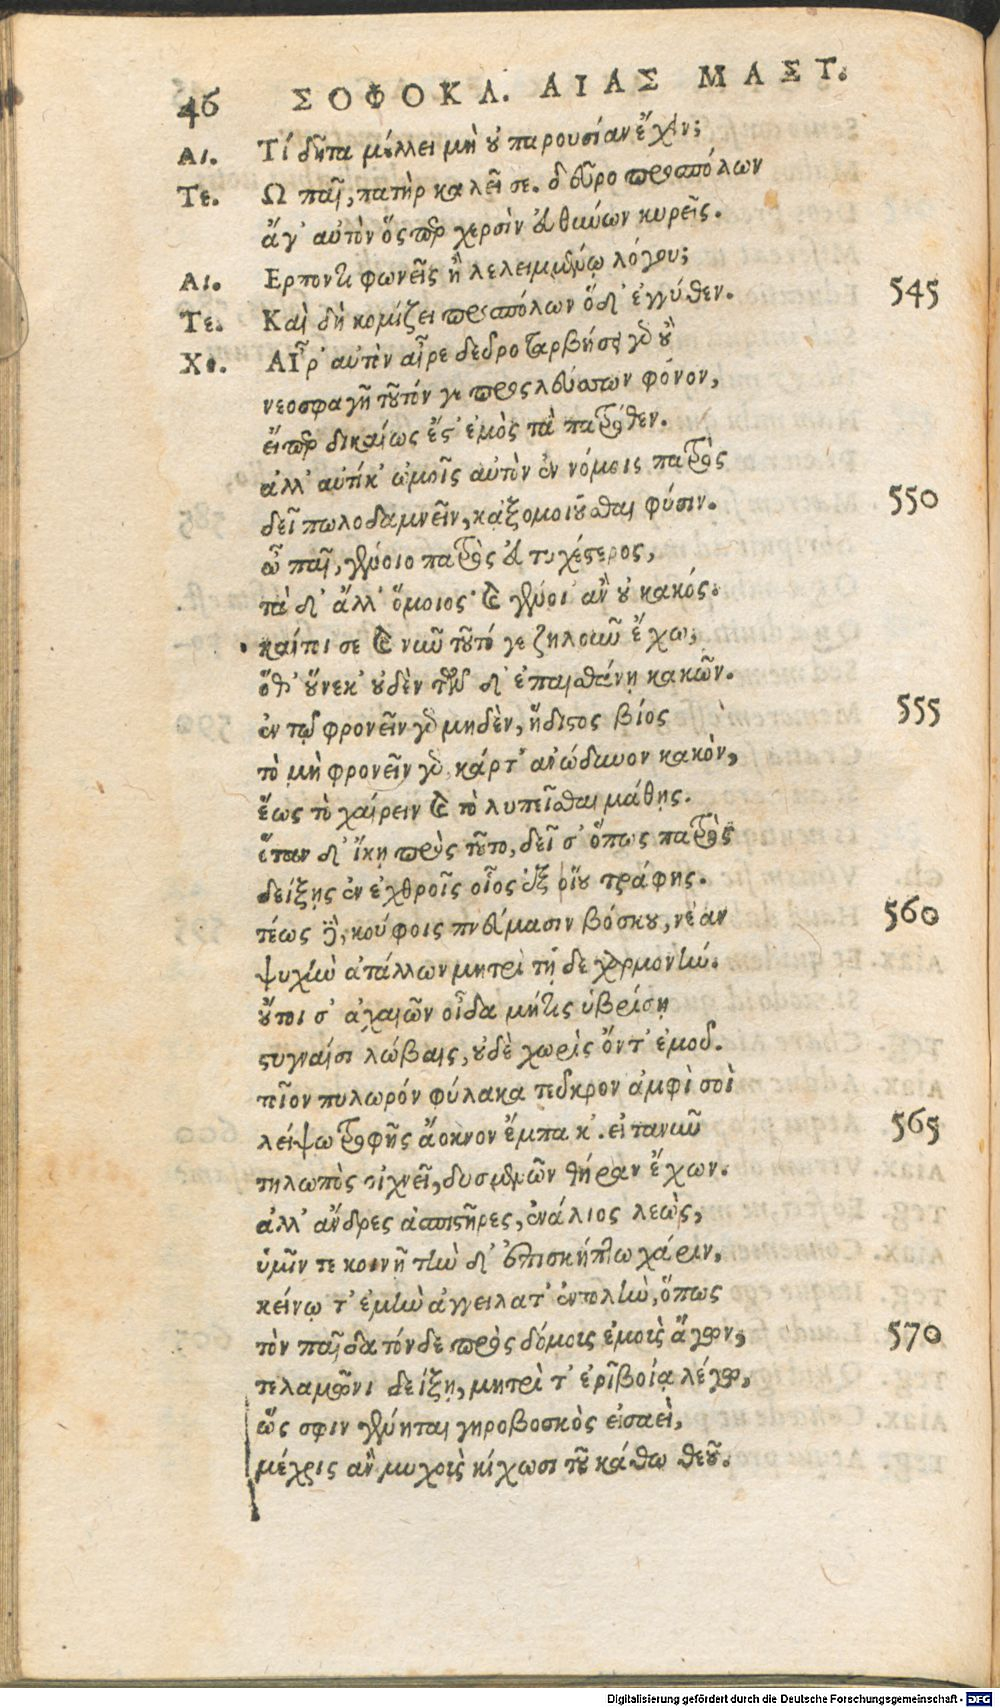 46 ΣΟΦΟΚΛ. ΑΙΑΣ ΜΑΣΤ.
Αι. Τί δῆτα μέλλει μὴ οὐ παρουσίαν ἔχειν;
Τε. Ω παῖ, πατὴρ καλεῖ σε. δεῦρο προσπόλων
ἄγ' αὐτὸν ὅσπερ χερσὶν εὐθύνων κυρεῖς.
Αι. Ερποντι φωνεῖς ἢ λελειμμένῳ λόγου;
Τε. Καὶ δὴ κομίζει προσπόλων ὅδ' ἐγγύθεν. 545
Χο. ΑΙρ' αὐτὸν αἶρε δεῦρο ταρβήσει γὰρ οὒ
νεοσφαγῆ τοῦτόν γε προσλεύσσων φόνον,
εἴπερ δικαίως ἔς' ἐμὸς τὰ πατρόθεν.
ἀλλ' αὐτίκ' ὠμοῖς αὐτὸν ἐν νόμοις πατρὸς
δεῖ πωλοδαμνεῖν, κἀξομοιοῦσθαι φύσιν. 550
ὦ παῖ, γένοιο πατρὸς εὐτυχέςερος,
τὰ δ' ἄλλ' ὅμοιος· καὶ γένοι' ἂν οὐ κακός.
καίτοι σε καὶ νῦν τοῦτό γε ζηλοῦν ἔχω,
ὅθ' οὕνεκ' οὐδὲν τῶνδ' ἐπαισθάνῃ κακῶν.
ἐν τῷ φρονεῖν γὰρ μηδὲν, ἥδιςος βίος 555
τὸ μὴ φρονεῖν γὰρ κάρτ' ἀνώδυνον κακὸν,
ἕως τὸ χαίρειν καὶ τὸ λυπεῖσθαι μάθῃς.
ὅταν δ' ἵκῃ πρὸς τοῦτο, δεῖ σ' ὅπως πατρὸς
δείξῃς ἐν ἐχθροῖς οἷος ἐξ οἵου τράφης.
τέως δὲ, κούφοις πνεύμασιν βόσκου, νέαν 560
ψυχὴν ἀτάλλων μητρὶ τῇδε χαρμονήν.
οὔτοι σ' ἀχαιῶν οἶδα μήτις ὑβρίσῃ
ςυγναῖσι λώβαις, οὐδὲ χωρὶς ὄντ' ἐμοῦ.
τοῖον πυλωρόν φύλακα τεῦκρον ἀμφὶ σοὶ
λείψω τροφῆς ἄοκνον ἔμπα κ'. εἰ τανῦν 565
τηλωπὸς οἰχνεῖ, δυσμενῶν θήραν ἔχων.
ἀλλ' ἄνδρες ἀσπιςῆρες, ἐνάλιος λεὼς,
ὑμῖν τε κοινῆ τὴν δ' ἐπισκήπτω χάριν,
κείνῳ τ' ἐμὴν ἀγγείλατ' ἐντολὴν, ὅπως
τὸν παῖδα τόνδε πρὸς δόμοις ἐμοὶς ἄγων, 570
τελαμῶνι δείξῃ, μητρὶ τ' ἐριβοίᾳ λέγω,
ὥς σφιν γένηται γηροβοσκὸς εἰσαεὶ,
μέχρις ἂν μυχοὶς κίχωσι τοῦ κάθω θεοῦ.
Digitalisierung gefördert durch die Deutsche Forschungsgemeinschaft - DFG